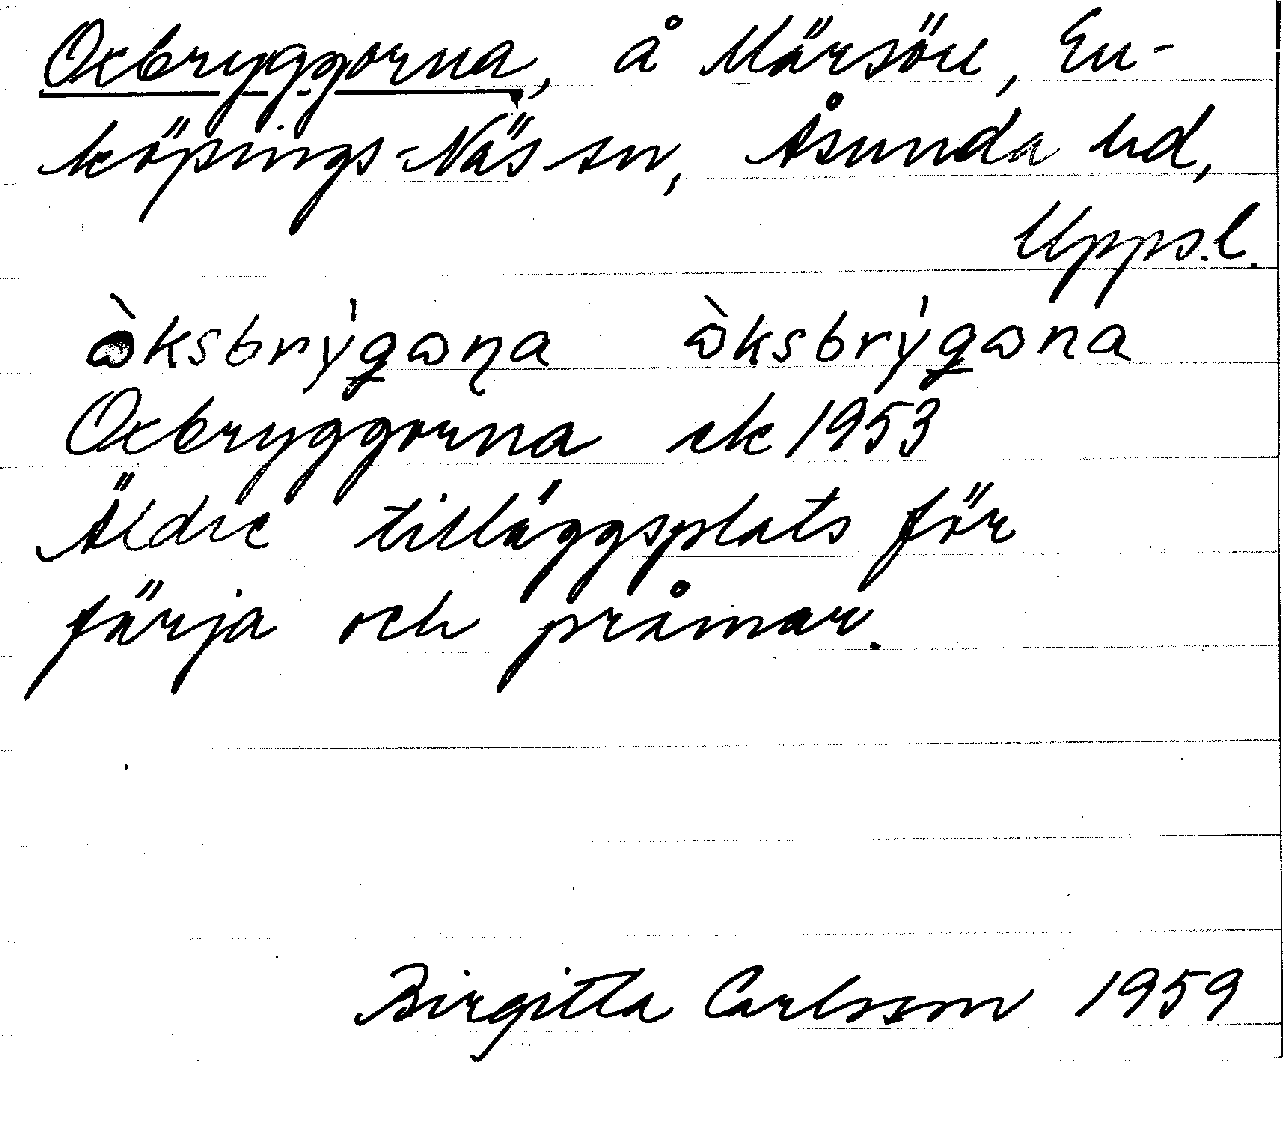 Oxbryggorna, å Märsön, En-
köpings-Näs sn, Åsunda hd,
Uppl.
Oxbryggorna ek 1953
Äldre tilläggsplats för
färja och pråmar.
Birgitta Carlsson 1959